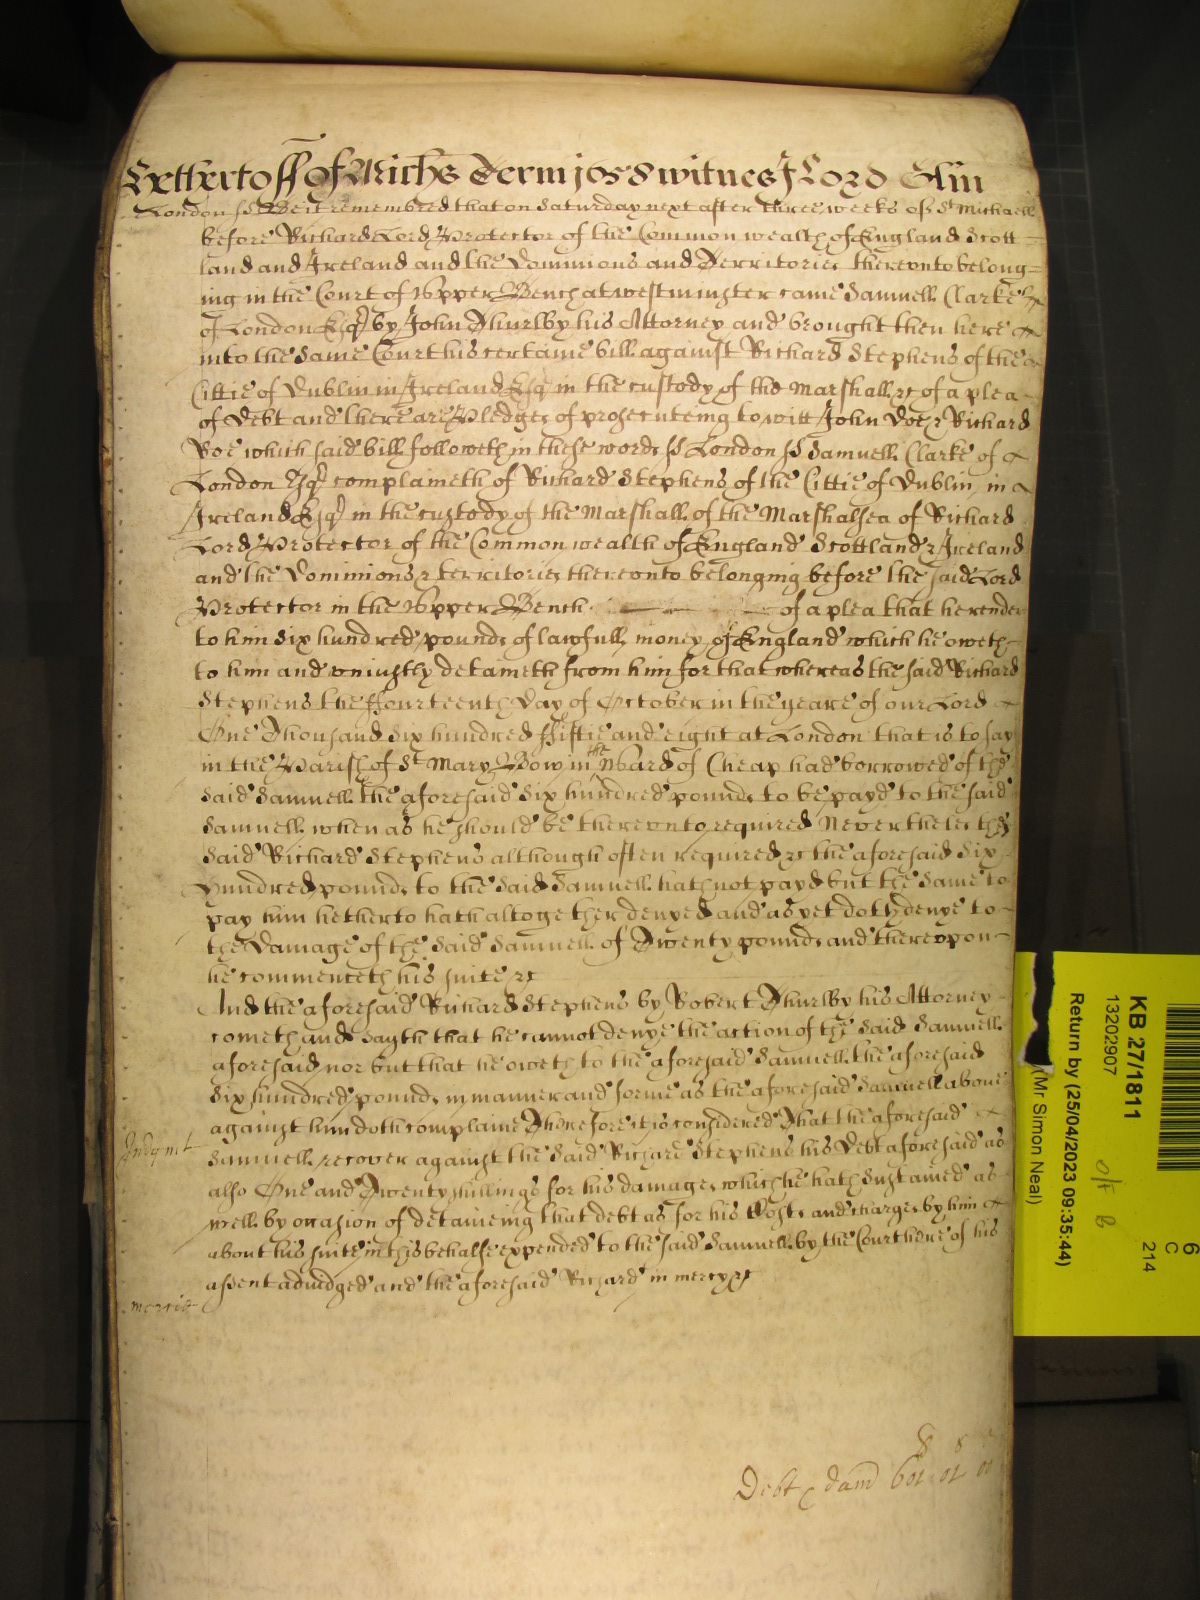 Hetherto ff of Michs Term 1658 witnes J Lord Glin
London ss Be it remembred that on Saturday next after three weekes of St Michaell
before Richard Lord Protector of the Common wealth of England Scott
land and Ireland and the Dominions and Territories therevnto belong=
ing in the Court of Vpper Bench at westminster came Samuell Clarke
of London Esqr by John Thurlby his Attorney and brought then here
into the same Court his certaine bill against Richard Stephens of the
Cittie of Dublin in Ireland Esqr in the custody of the Marshall &c of a plea
of Debt and there are Pledges of prosecuteing to witt John Doe & Richard
Roe which said bill followeth in these words ss London ss Samuell Clarke of
London Esqr complaineth of Richard Stephens of the Cittie of Dublin in
Ireland Esqr in the custody of the Marshall of the Marshalsea of Richard
Lord Protector of the Common wealth of England Scotland & Ireland
and the Dominions & territories therevnto belonging before the said Lord
Protector in the Vpper Bench of a plea that he render
to him six hundred pounds of lawfull money of England which he oweth
to him and vniustly detaineth from him for that whereas the said Richard
Stephens the ffourteenth day of October in the yeare of our Lord
One Thousand six hundred ffiftie and eight at London that is to say
in the Parish of St Mary Bow in the Ward of Cheap had borrowed of the
said Samuell the aforesaid six hundred pounds to be payd to the said
Samuell when as he should be therevnto required Neverthelesse the
said Richard Stephens although often required &c the aforesaid six
hundred pounds to the said Samuell hath not payd but the same to
pay him hetherto hath altogether denyed and as yet doth denye to
the damage of the said Samuell of Twenty pounds and therevpon
he commenceth his suite &c
And the aforesaid Richard Stephens by Robert Thurlby his Attorney
cometh and sayth that he cannot denye the action of the said Samuell
aforesaid nor but that he oweth to the aforesaid Samuell the aforesaid
six hundred pounds in manner and forme as the aforesaid Samuell above
against him doth complaine Therefore it is considered That the aforesaid
Judgmt Samuell recover against the said Richard Stephens his Debt aforesaid as
also One and Twenty shillings for his damages which he hath sustained as
well by occasion of detaineing that debt as for his Costs and charges by him
about his suite in this behalfe expended to the said Samuell by the Court here of his
assent adiudged and the aforesaid Richard in mercy &c
mercie
Debt & dam 601 01 00
KB 27/1811
13202907
Return by (25/04/2023 09:35:44)
(Mr Simon Neal)
O/F B
6
C
214